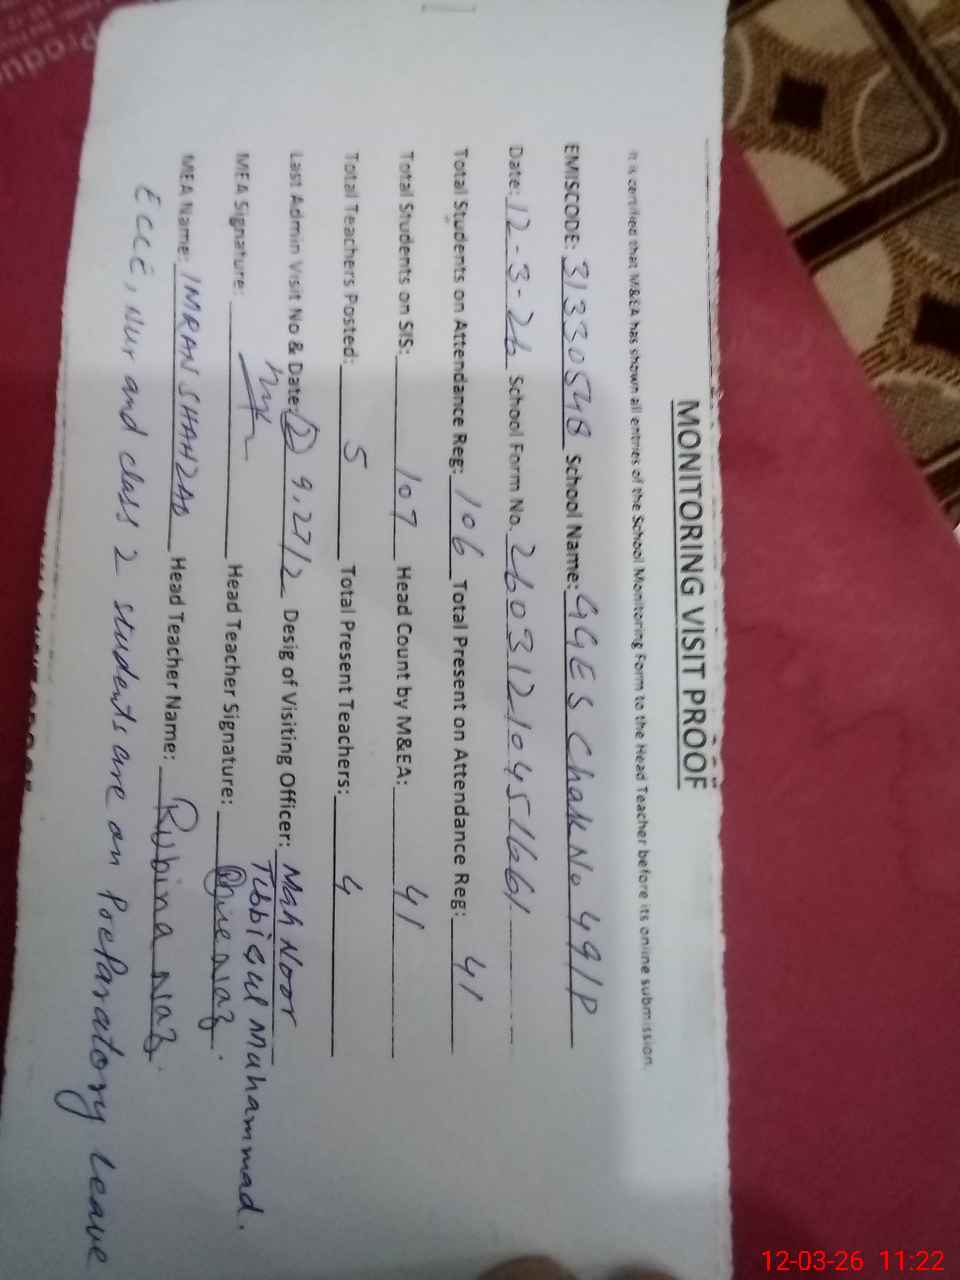 MONITORING VISIT PROOF
It is certified that M&EA has shown all entries of the School Monitoring Form to the Head Teacher before its online submission.
EMISCODE: 31330548 School Name: GGES Chak No 49/P
Date: 12-3-26 School Form No. 26031210451661
Total Students on Attendance Reg: 106 Total Present on Attendance Reg: 41
Total Students on SIS: 107 Head Count by M&EA: 41
Total Teachers Posted: 5 Total Present Teachers: 4
Last Admin Visit No & Date: (2) 9,27/2 Desig of Visiting Officer: Mah Noor
Tibbi Gul Muhammad.
MEA Signature: Head Teacher Signature:
MEA Name: IMRAN SHAHZAD Head Teacher Name: Rubina Naz.
ECCE, Nur and class 2 students are on Preparatory Leave
Produ
12-03-26 11:22